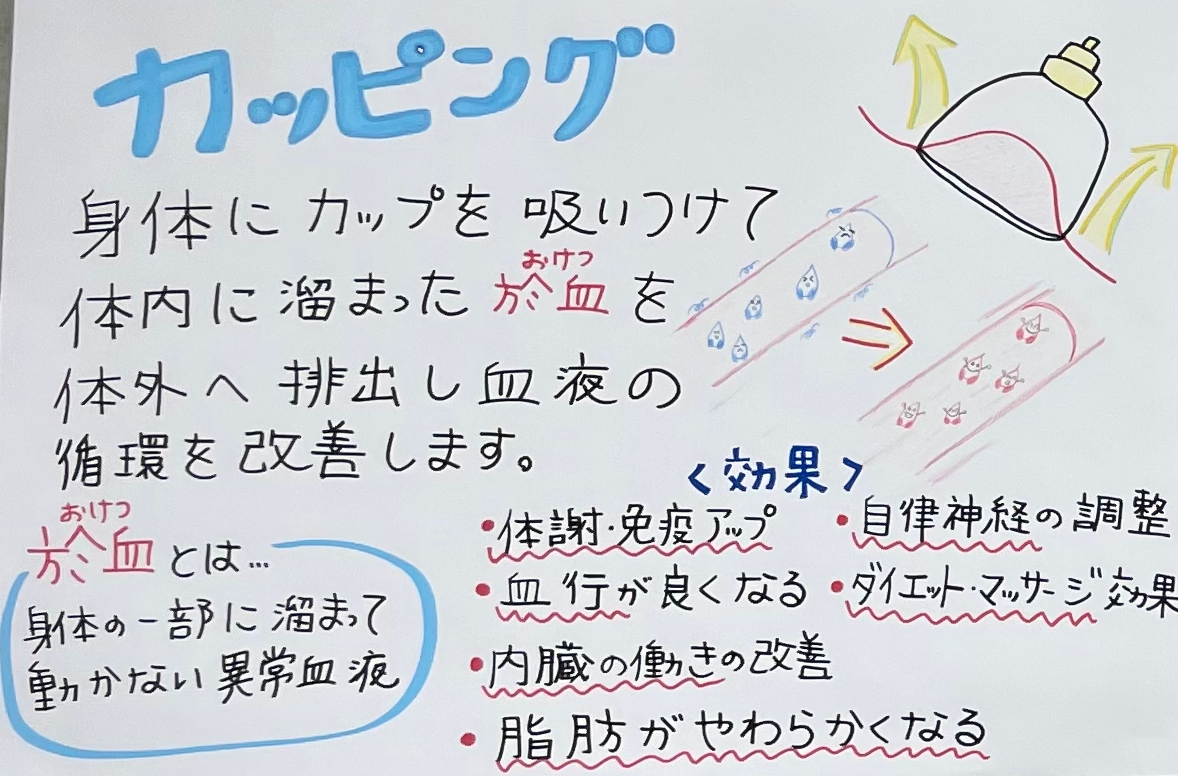 カッピング
身体にカップを吸いつけて
おけつ
体内に溜まった於血を
体外へ排出し血液の
循環を改善します。
おけつ
於血とは…
身体の一部に溜まって
動かない異常血液
<効果>
・体謝・免疫アップ
・血行が良くなる
・内臓の働きの改善
・脂肪がやわらかくなる
・自律神経の調整
・ダイエット・マッサージ効果